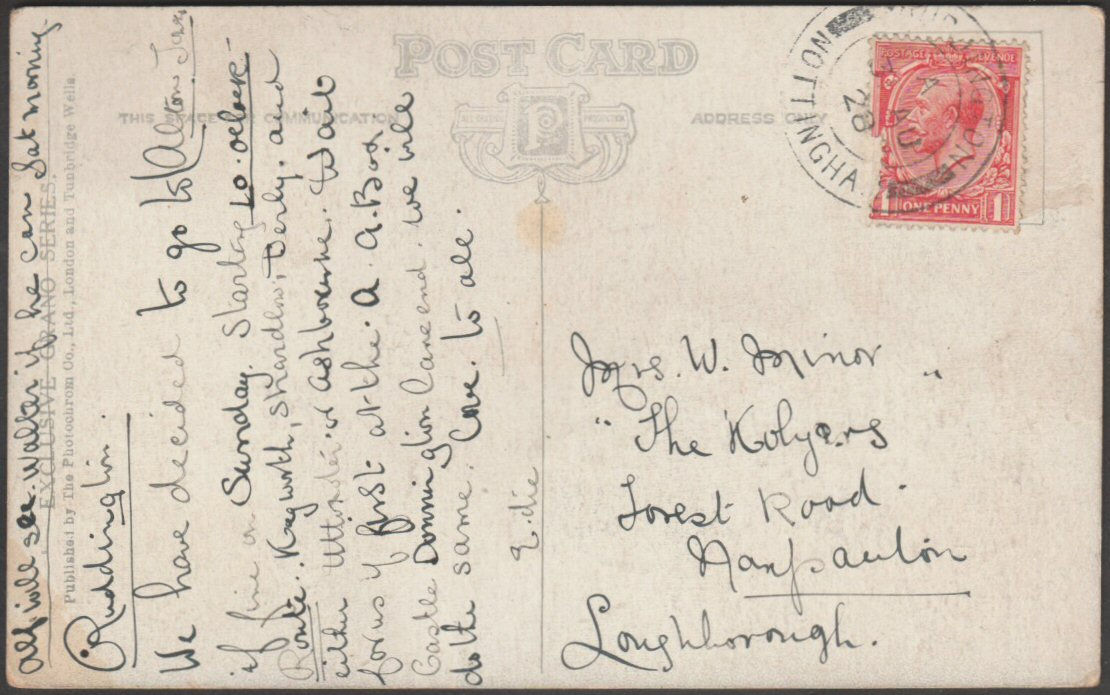 POST CARD
THIS SPACE FOR COMMUNICATION
ADDRESS ONLY
EXCLUSIVE GRANO SERIES.
Published by The Photochrom Co., Ltd., London and Tunbridge Wells
Alf will see Walter if he can Sat morning
Ruddington
We have decided to go to Alton
if fine on Sunday. Starting 10. oclock
Route.. Kegworth, Shardlow, Derby, and
either Uttoxeter or Ashbourne. Wait
for us if first at the A.A. Box
Castle Donnington Lane end. we will
do the same. Love to all.
Edie
POSTAGE REVENUE
ONE PENNY
1 1
NOTTINGHAM
4 AU
28
Mrs. W. Minor
"The Kolyers"
Forest Road
Nanpantan
Loughborough.